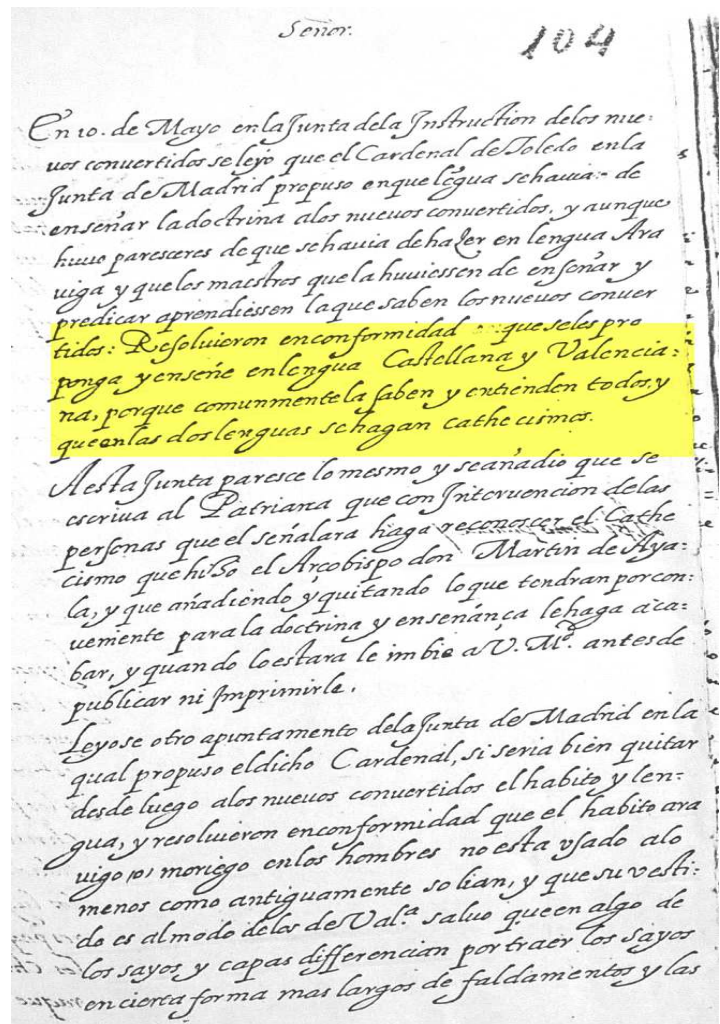 Señor.
104
En 10. de Mayo en la Junta de la Instruction de los nue-
vos convertidos se leyo que el Cardenal de Toledo en la
Junta de Madrid propuso en que lengua se havia de
enseñar la doctrina a los nuevos convertidos, y aunque
huvo paresceres de que se havia de hazer en lengua Ara
viga y que los maestros que la huviessen de enseñar y
predicar aprendiessen la que saben los nuevos conver
tidos: Resolvieron en conformidad que se les pro
ponga y enseñe en lengua Castellana y Valencia-
na, porque comunmente la saben y entienden todos, y
que en las dos lenguas se hagan cathecismos.
A esta Junta paresce lo mesmo y se añadio que se
escriva al Patriarca que con Intervencion de las
personas que el señalara haga reconoscer el Cathe
cismo que hizo el Arcobispo don Martin de Aya-
la, y que añadiendo y quitando lo que tendran por con-
veniente para la doctrina y enseñança le haga aca-
bar, y quando lo estara le imbie a V. Md. antes de
publicar ni Imprimirle.
Leyose otro apuntamento de la Junta de Madrid en la
qual propuso el dicho Cardenal, si seria bien quitar
desde luego a los nuevos convertidos el habito y len-
gua, y resolvieron en conformidad que el habito ara
vigo, o, moriego en los hombres no esta usado a lo
menos como antiguamente solian, y que su vesti-
do es al modo de los de Val.ª salvo que en algo de
los sayos y capas differencian por traer los sayos
en cierta forma mas largos de faldamentos y las